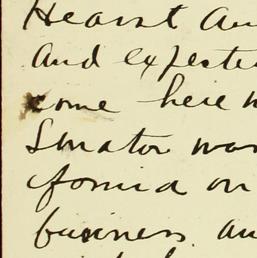 Hearst an
and expecte
come here
Senator was
found on
business an